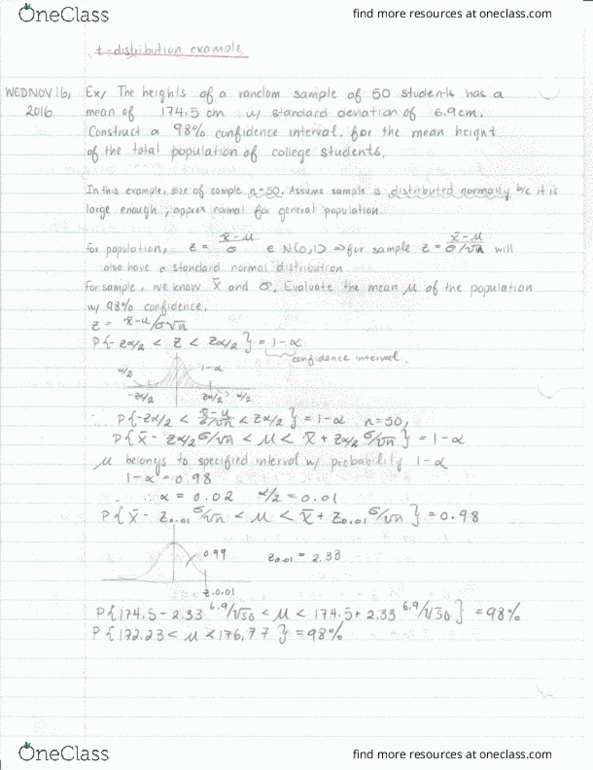 OneClass
find more resources at oneclass.com
t-distribution example
WED NOV 16, 2016
Ex/ The heights of a random sample of 50 students has a
mean of 174.5 cm w/ standard deviation of 6.9cm.
Construct a 98% confidence interval for the mean height
of the total population of college students.
In this example, size of sample n=50. Assume sample is distributed normally b/c it is
large enough, approx normal for general population.
For population, z = x̄-μ/σ ∈ N(0,1) ⇒ for sample z = x̄-μ/σ/√n will
also have a standard normal distribution
For sample, we know x̄ and σ. Evaluate the mean μ of the population
w/ 98% confidence.
z = x̄-μ/σ√n
P{-zα/2 < z < zα/2} = 1-α
confidence interval.
α/2 1-α
-zα/2 zα/2 α/2
P{-zα/2 < x̄-μ/σ/√n < zα/2} = 1-α n=50,
P{x̄ - zα/2 σ/√n < μ < x̄ + zα/2 σ/√n} = 1-α
μ belongs to specified interval w/ probability 1-α
1-α = 0.98
∴ α = 0.02 α/2 = 0.01
P{x̄ - z0.01 σ/√n < μ < x̄ + z0.01 σ/√n} = 0.98
0.99 z0.01 = 2.33
z0.01
P{174.5 - 2.33 6.9/√50 < μ < 174.5 + 2.33 6.9/√50} = 98%
P{172.23 < μ < 176.77} = 98%
OneClass
find more resources at oneclass.com